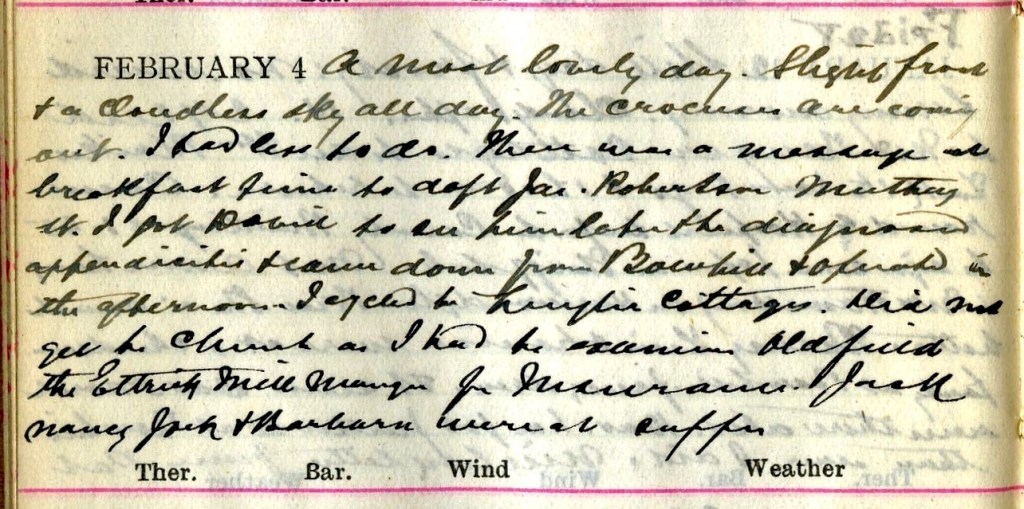 FEBRUARY 4 A most lovely day. Slight frost
& a cloudless sky all day. The crocuses are coming
out. I had less to do. There was a message at
breakfast time to daft Jas. Robertson
St. I got David to see him later & he diagnosed
appendicitis & came down from Bowhill & operated in
the afternoon. I cycled to Linglie Cottages. Did not
get to Church as I had to examine Oldfield
the Ettrick Mill Manager for Insurance. Jack
Nancy Jock & Barbara were at supper
Ther. Bar. Wind Weather